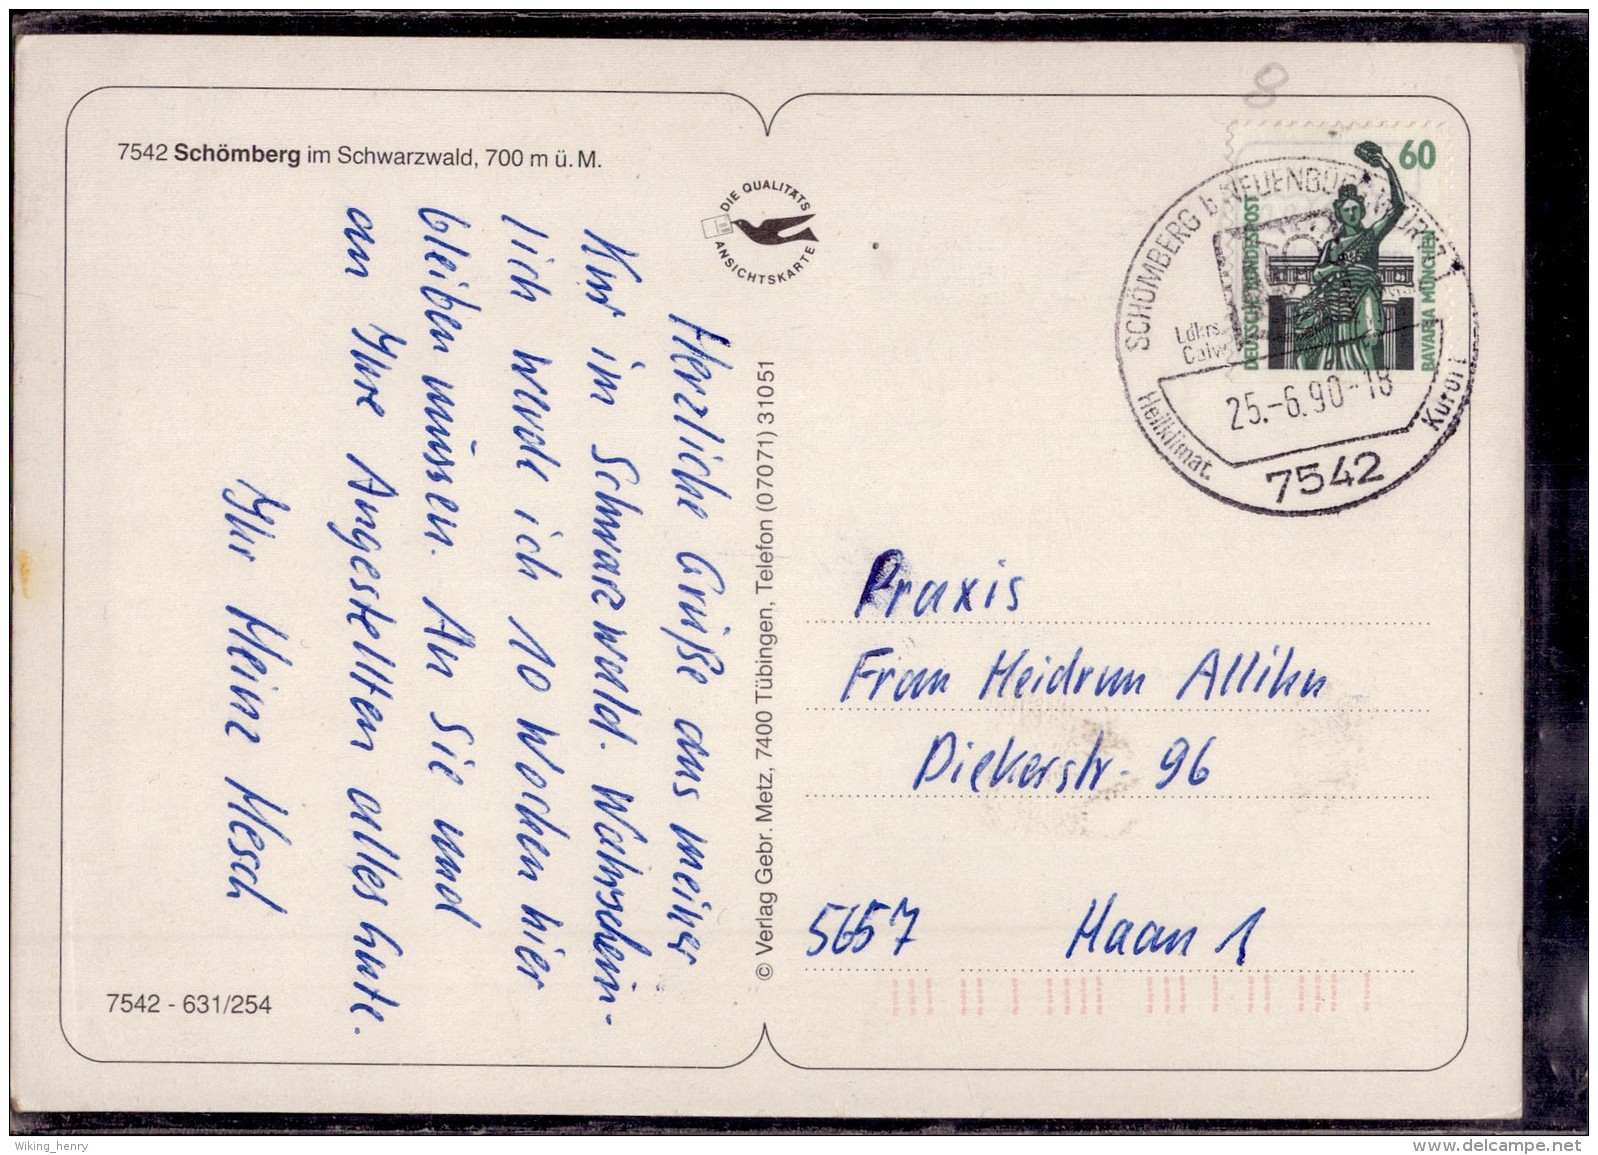 7542 Schömberg im Schwarzwald, 700 m ü. M.
DIE QUALITÄTS
ANSICHTSKARTE
Herzliche Grüße aus meiner
Kur in Schwarzwald. Wahrschein-
lich werde ich 10 Wochen hier
bleiben müssen. An Sie und
an Ihre Angestellten alles Gute.
Ihr Heinz Hesch
© Verlag Gebr. Metz, 7400 Tübingen, Telefon (07071) 31051
7542 - 631/254
8
60
DEUTSCHE BUNDESPOST
BAVARIA MÜNCHEN
SCHÖMBERG b. NEUENBÜRG WÜRTT
Ldkrs.
Calw
25.-6.90-18
Heilklimat.
Kurort
7542
Praxis
Frau Heidrun Allihn
Diekerstr. 96
5657 Haan 1
Wiking_henry
www.delcampe.net